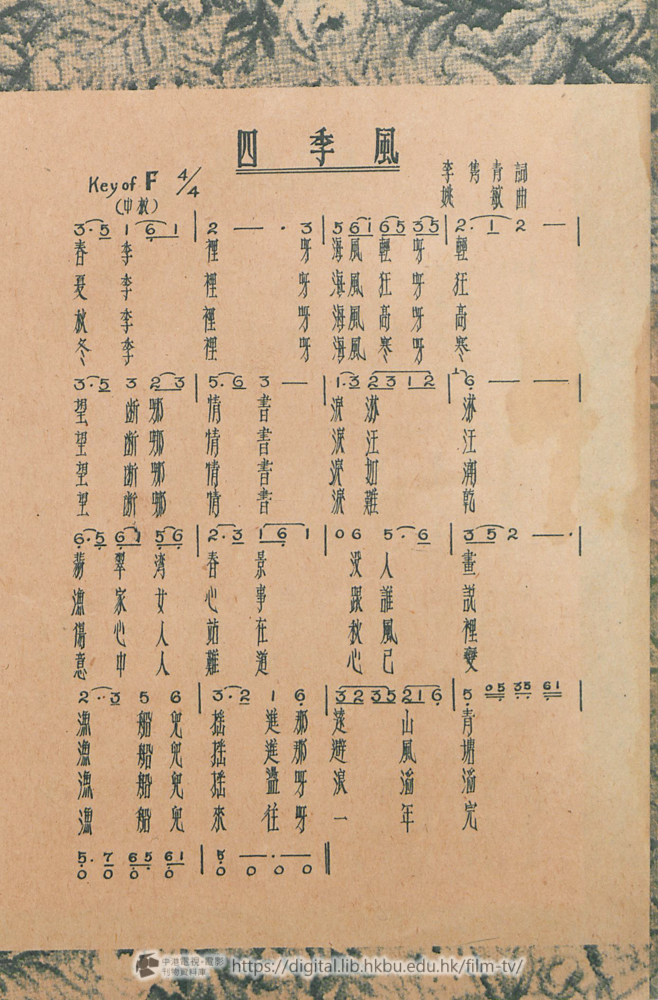 四季風
Key of F 4/4
(中板)
李雋青 詞
姚敏 曲
3·5 1 6 1 | 2 — · 3 | 5 6 1 6 5 3 5 | 2· 1 2 — |
春季裡呀海風輕呀輕
夏季裡呀海風狂呀狂
秋季裡呀海風高呀高
冬季裡呀海風寒呀寒
3·5 3 2 3 | 5·6 3 — | 1·3 2 3 1 2 | 6 — — |
望斷哪情書淚淋淋
望斷哪情書淚汪汪
望斷哪情書淚如潮
望斷哪情書淚難乾
6·5 6 1 5 6 | 2·3 1 6 1 | 0 6 5·6 | 3 5 2 — · |
翠灣春景沒人畫
漁家女心事跟誰說
傷心人站在秋風裡
意中人難道心已變
2·3 5 6 | 3·2 1 6 | 3 2 3 5 2 1 6 | 5 0 5 3 5 6 1 |
漁船兒搖進那遠山青
漁船兒搖進那避風塘
漁船兒搖盪呀浪滔滔
漁船兒來往呀一年完
5·7 6 5 6 1 | 5 — · — · ||
0 0 0 0 0 0 0 0
中港電視·電影
刊物資料庫
https://digital.lib.hkbu.edu.hk/film-tv/